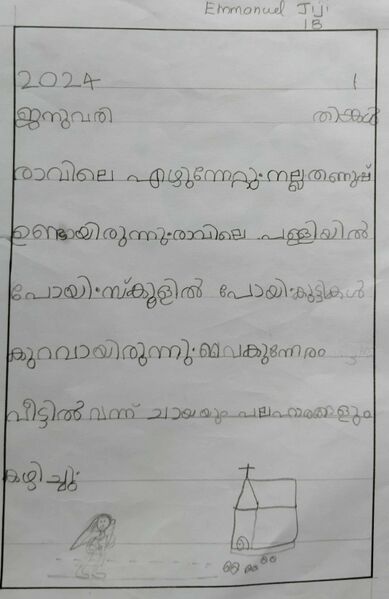 Emmanuel Jiji
1B
2024 1
ജനുവരി തിങ്കൾ
രാവിലെ എഴുന്നേറ്റു. നല്ല തണുപ്പ്
ഉണ്ടായിരുന്നു. രാവിലെ പള്ളിയിൽ
പോയി. സ്കൂളിൽ പോയി. കുട്ടികൾ
കുറവായിരുന്നു. വൈകുന്നേരം
വീട്ടിൽ വന്ന് ചായയും പലഹാരങ്ങളും
കഴിച്ചു.